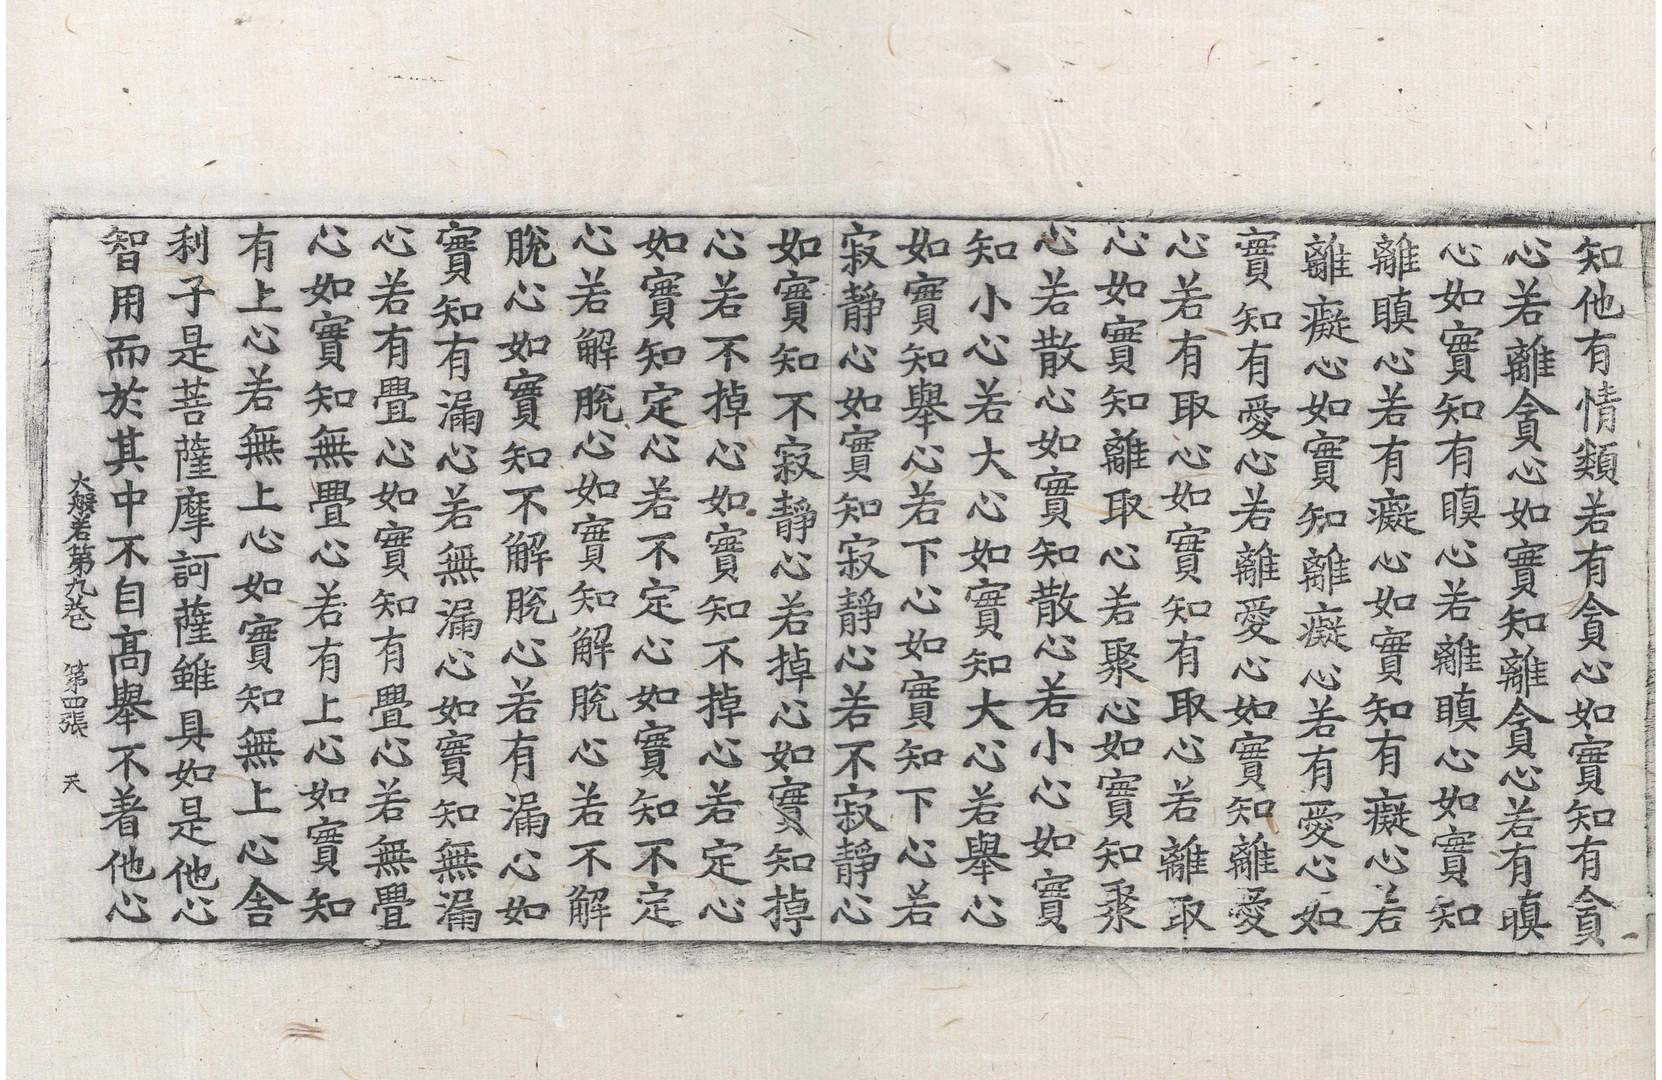 知他有情類若有貪心如實知有貪
心若離貪心如實知離貪心若有瞋
心如實知有瞋心若離瞋心如實知
離瞋心若有癡心如實知有癡心若
離癡心如實知離癡心若有愛心如
實知有愛心若離愛心如實知離愛
心若有取心如實知有取心若離取
心如實知離取心若聚心如實知聚
心若散心如實知散心若小心如實
知小心若大心如實知大心若舉心
如實知舉心若下心如實知下心若
寂靜心如實知寂靜心若不寂靜心
如實知不寂靜心若掉心如實知掉
心若不掉心如實知不掉心若定心
如實知定心若不定心如實知不定
心若解脫心如實知解脫心若不解
脫心如實知不解脫心若有漏心如
實知有漏心若無漏心如實知無漏
心若有疊心如實知有疊心若無疊
心如實知無疊心若有上心如實知
有上心若無上心如實知無上心舍
利子是菩薩摩訶薩雖具如是他心
智用而於其中不自髙舉不着他心
大般若第九卷 第四張 天